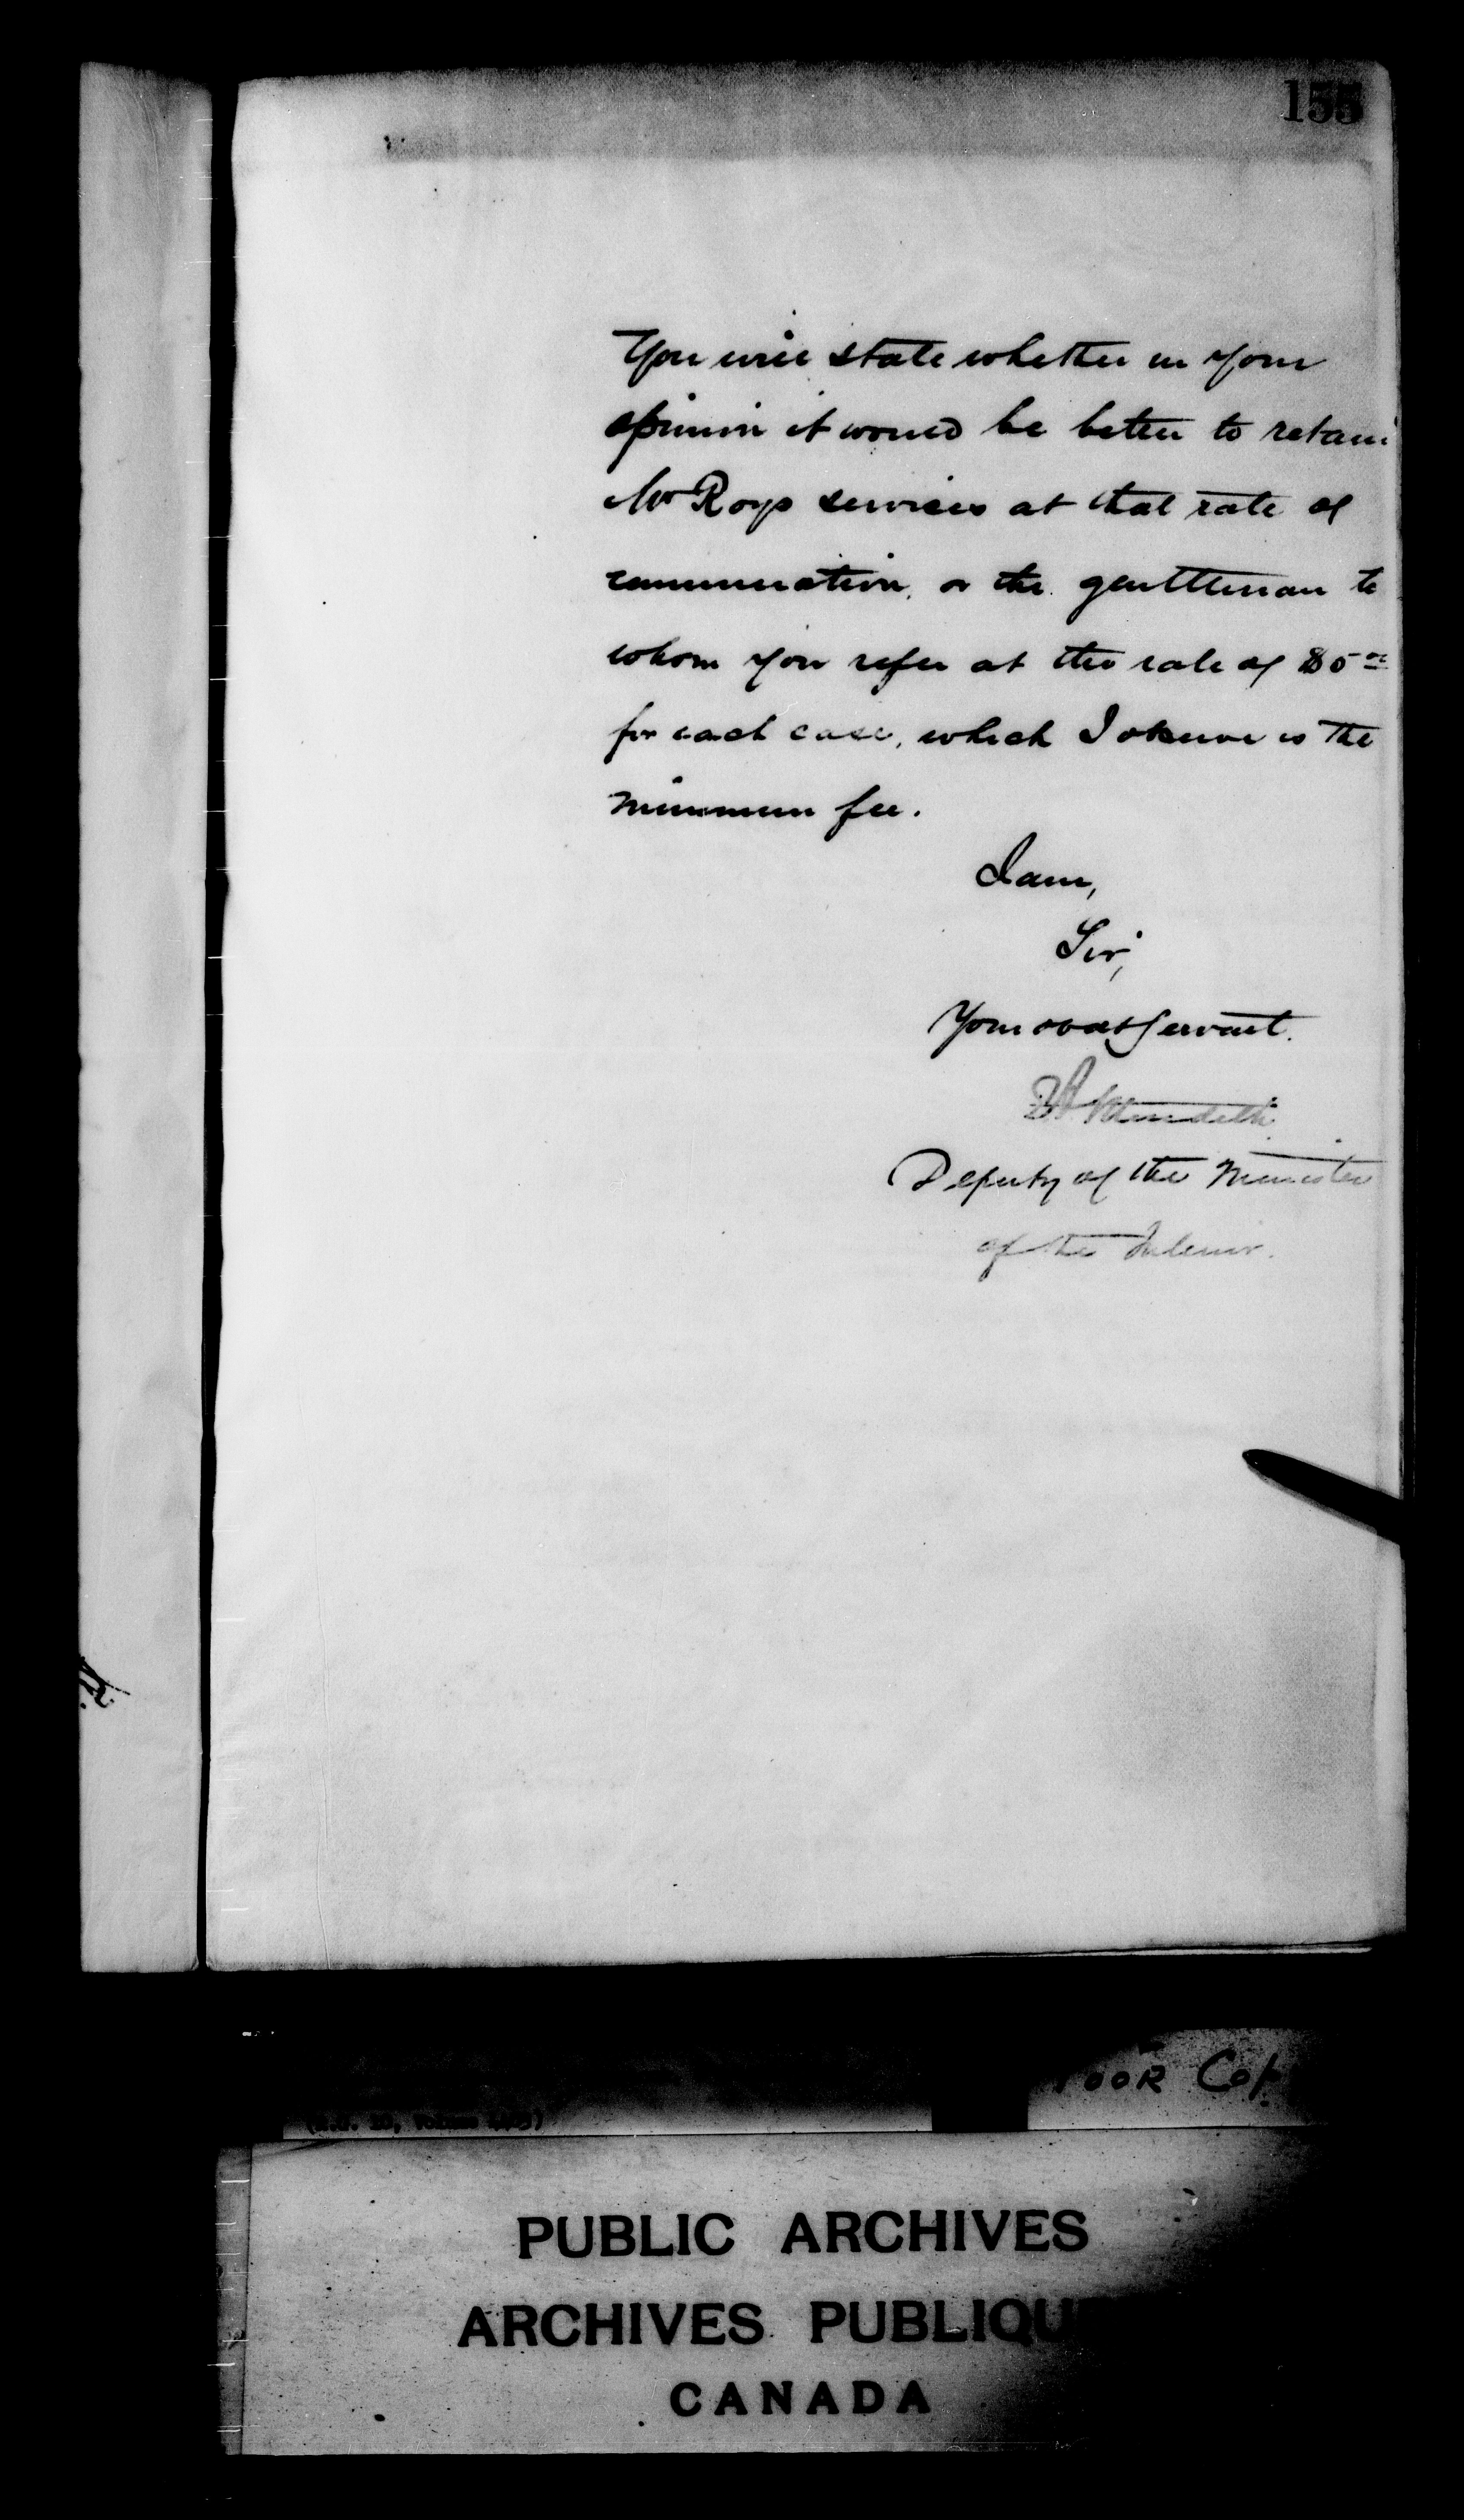 155
You will state whether in your
opinion it would be better to retain
Mr Roys services at that rate of
remuneration, or the gentleman to
whom you refer at the rate of $5
for each case, which I observe is the
minimum fee.
I am,
Sir,
Your obdt Servant.
Meredith
Deputy of the Minister
of the Interior.
POOR Cop
PUBLIC ARCHIVES
ARCHIVES PUBLIQU
CANADA